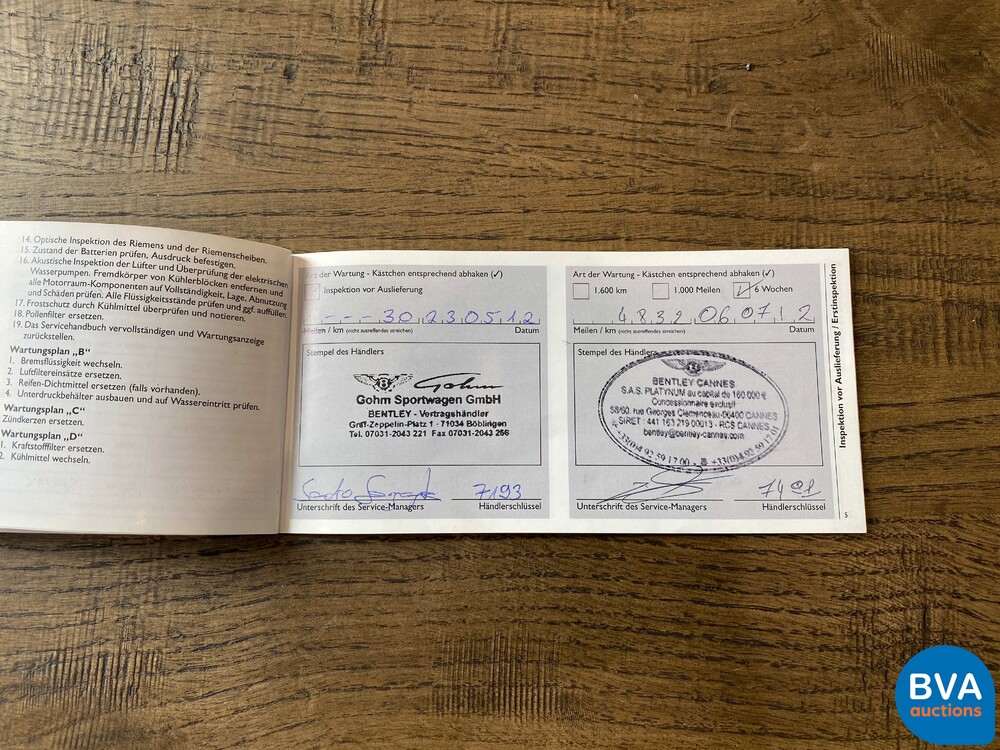 14. Optische Inspektion des Riemens und der Riemenscheiben.
15. Zustand der Batterien prüfen, Ausdruck befestigen.
16. Akustische Inspektion der Lüfter und Überprüfung der elektrischen
Wasserpumpen. Fremdkörper von Kühlerblöcken entfernen und
alle Motorraum-Komponenten auf Vollständigkeit, Lage, Abnutzung
und Schäden prüfen. Alle Flüssigkeitsstände prüfen und ggf. auffüllen.
17. Frostschutz durch Kühlmittel überprüfen und notieren.
18. Pollenfilter ersetzen.
19. Das Servicehandbuch vervollständigen und Wartungsanzeige
zurückstellen.
Wartungsplan „B"
1. Bremsflüssigkeit wechseln.
2. Luftfiltereinsätze ersetzen.
3. Reifen-Dichtmittel ersetzen (falls vorhanden).
4. Unterdruckbehälter ausbauen und auf Wassereintritt prüfen.
Wartungsplan „C"
Zündkerzen ersetzen.
Wartungsplan „D"
1. Kraftstofffilter ersetzen.
2. Kühlmittel wechseln.
Art der Wartung - Kästchen entsprechend abhaken (✓)
Inspektion vor Auslieferung
- - - 30 230512
Meilen / km (nicht zutreffendes streichen) Datum
Stempel des Händlers
Gohm
Gohm Sportwagen GmbH
BENTLEY - Vertragshändler
Graf-Zeppelin-Platz 1 · 71034 Böblingen
Tel. 07031-2043 221 Fax 07031-2043 256
7193
Unterschrift des Service-Managers Händlerschlüssel
Art der Wartung - Kästchen entsprechend abhaken (✓)
1.600 km 1.000 Meilen ✓ 6 Wochen
4832 060712
Meilen / km (nicht zutreffendes streichen) Datum
Stempel des Händlers
BENTLEY CANNES
S.A.S. PLATYNUM au capital de 160 000 €
Concessionnaire exclusif
58/60, rue Georges Clemenceau-06400 CANNES
SIRET : 441 163 219 00013 - RCS CANNES
bentley@bentley-cannes.com
+33(0)4 92 59 17 00 - +33(0)4 92 59 17 01
7491
Unterschrift des Service-Managers Händlerschlüssel
Inspektion vor Auslieferung / Erstinspektion
5
BVA
auctions